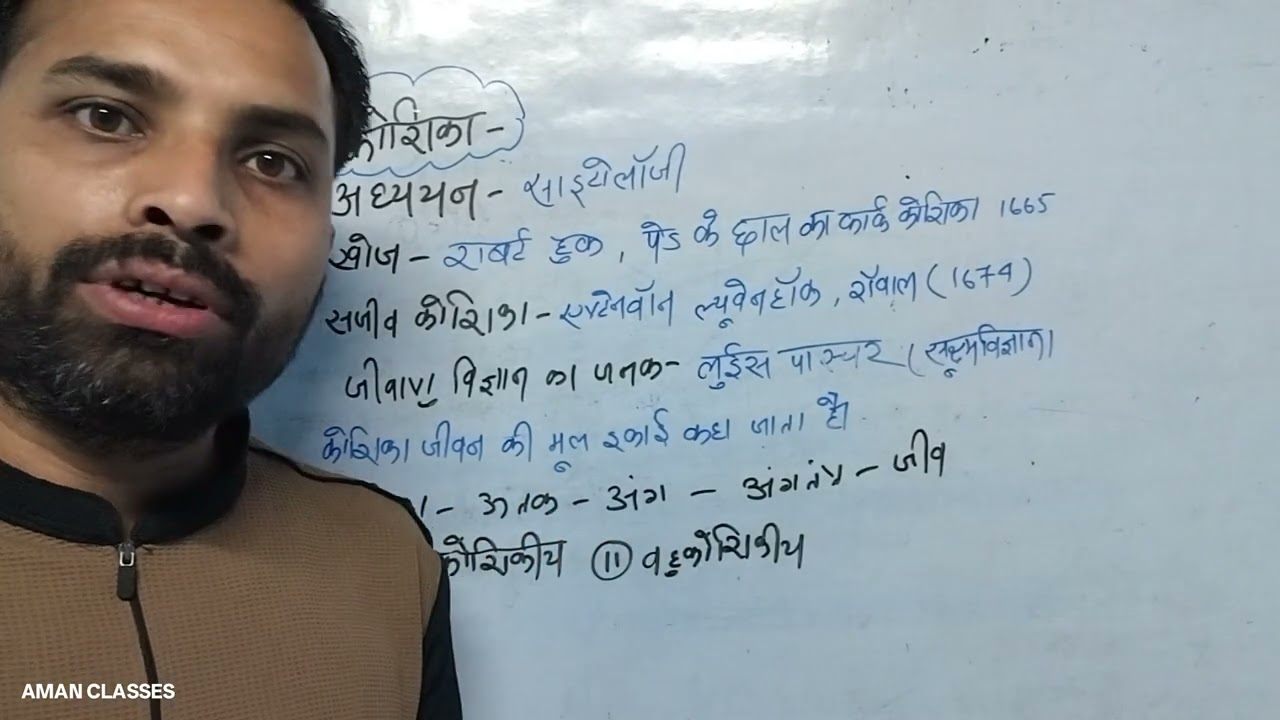 कोशिका -
अध्ययन - साइटोलॉजी
खोज - राबर्ट हुक, पेड के छाल का कार्क कोशिका 1665
सजीव कोशिका - एण्टोनवॉन ल्यूवेनहॉक, शैवाल (1674)
जीवाणु विज्ञान का जनक - लुईस पाश्चर (सूक्ष्मविज्ञान)
कोशिका जीवन की मूल इकाई कहा जाता है।
- ऊतक - अंग - अंगतंत्र - जीव
कोशिकीय (II) बहुकोशिकीय
AMAN CLASSES